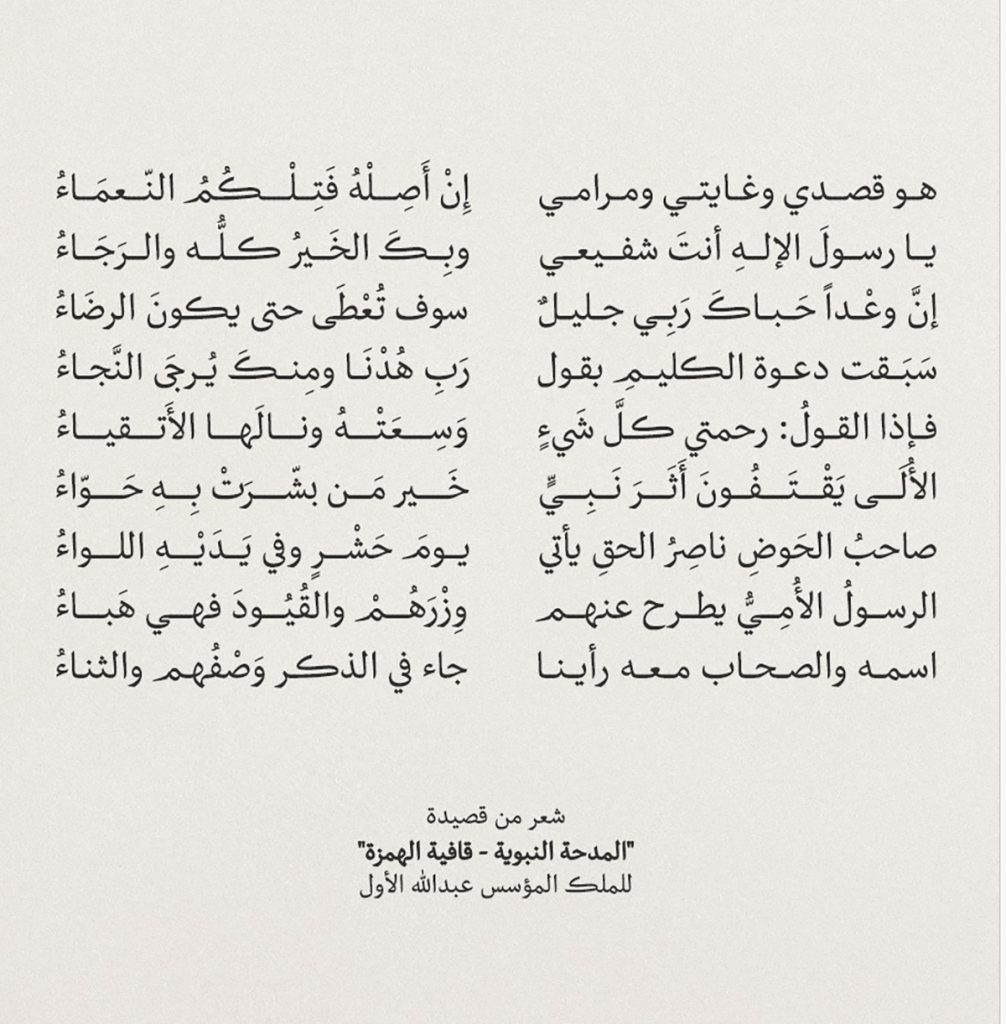 هو قصدي وغايتي ومرامي إِنْ أَصِلْهُ فَتِلْكُمُ النّعمَاءُ
يا رسولَ الإلهِ أنتَ شفيعي وبِكَ الخَيرُ كلُّه والرَجَاءُ
إنَّ وعْداً حَباكَ رَبِي جليلٌ سوف تُعْطَى حتى يكونَ الرضَاءُ
سَبَقت دعوة الكليمِ بقول رَبِ هُدْنَا ومِنكَ يُرجَى النَّجاءُ
فإذا القولُ: رحمتي كلَّ شَيءٍ وَسِعَتْهُ ونالَها الأَتقياءُ
الأُلَى يَقْتَفُونَ أَثَرَ نَبِيٍّ خَير مَن بشّرَتْ بِهِ حَوّاءُ
صاحبُ الحَوضِ ناصِرُ الحقِ يأتي يومَ حَشْرٍ وفي يَدَيْهِ اللواءُ
الرسولُ الأُمِيُّ يطرح عنهم وِزْرَهُمْ والقُيُودَ فهي هَباءُ
اسمه والصحاب معه رأينا جاء في الذكر وَصْفُهم والثناءُ
شعر من قصيدة
"المدحة النبوية - قافية الهمزة"
للملك المؤسس عبدالله الأول